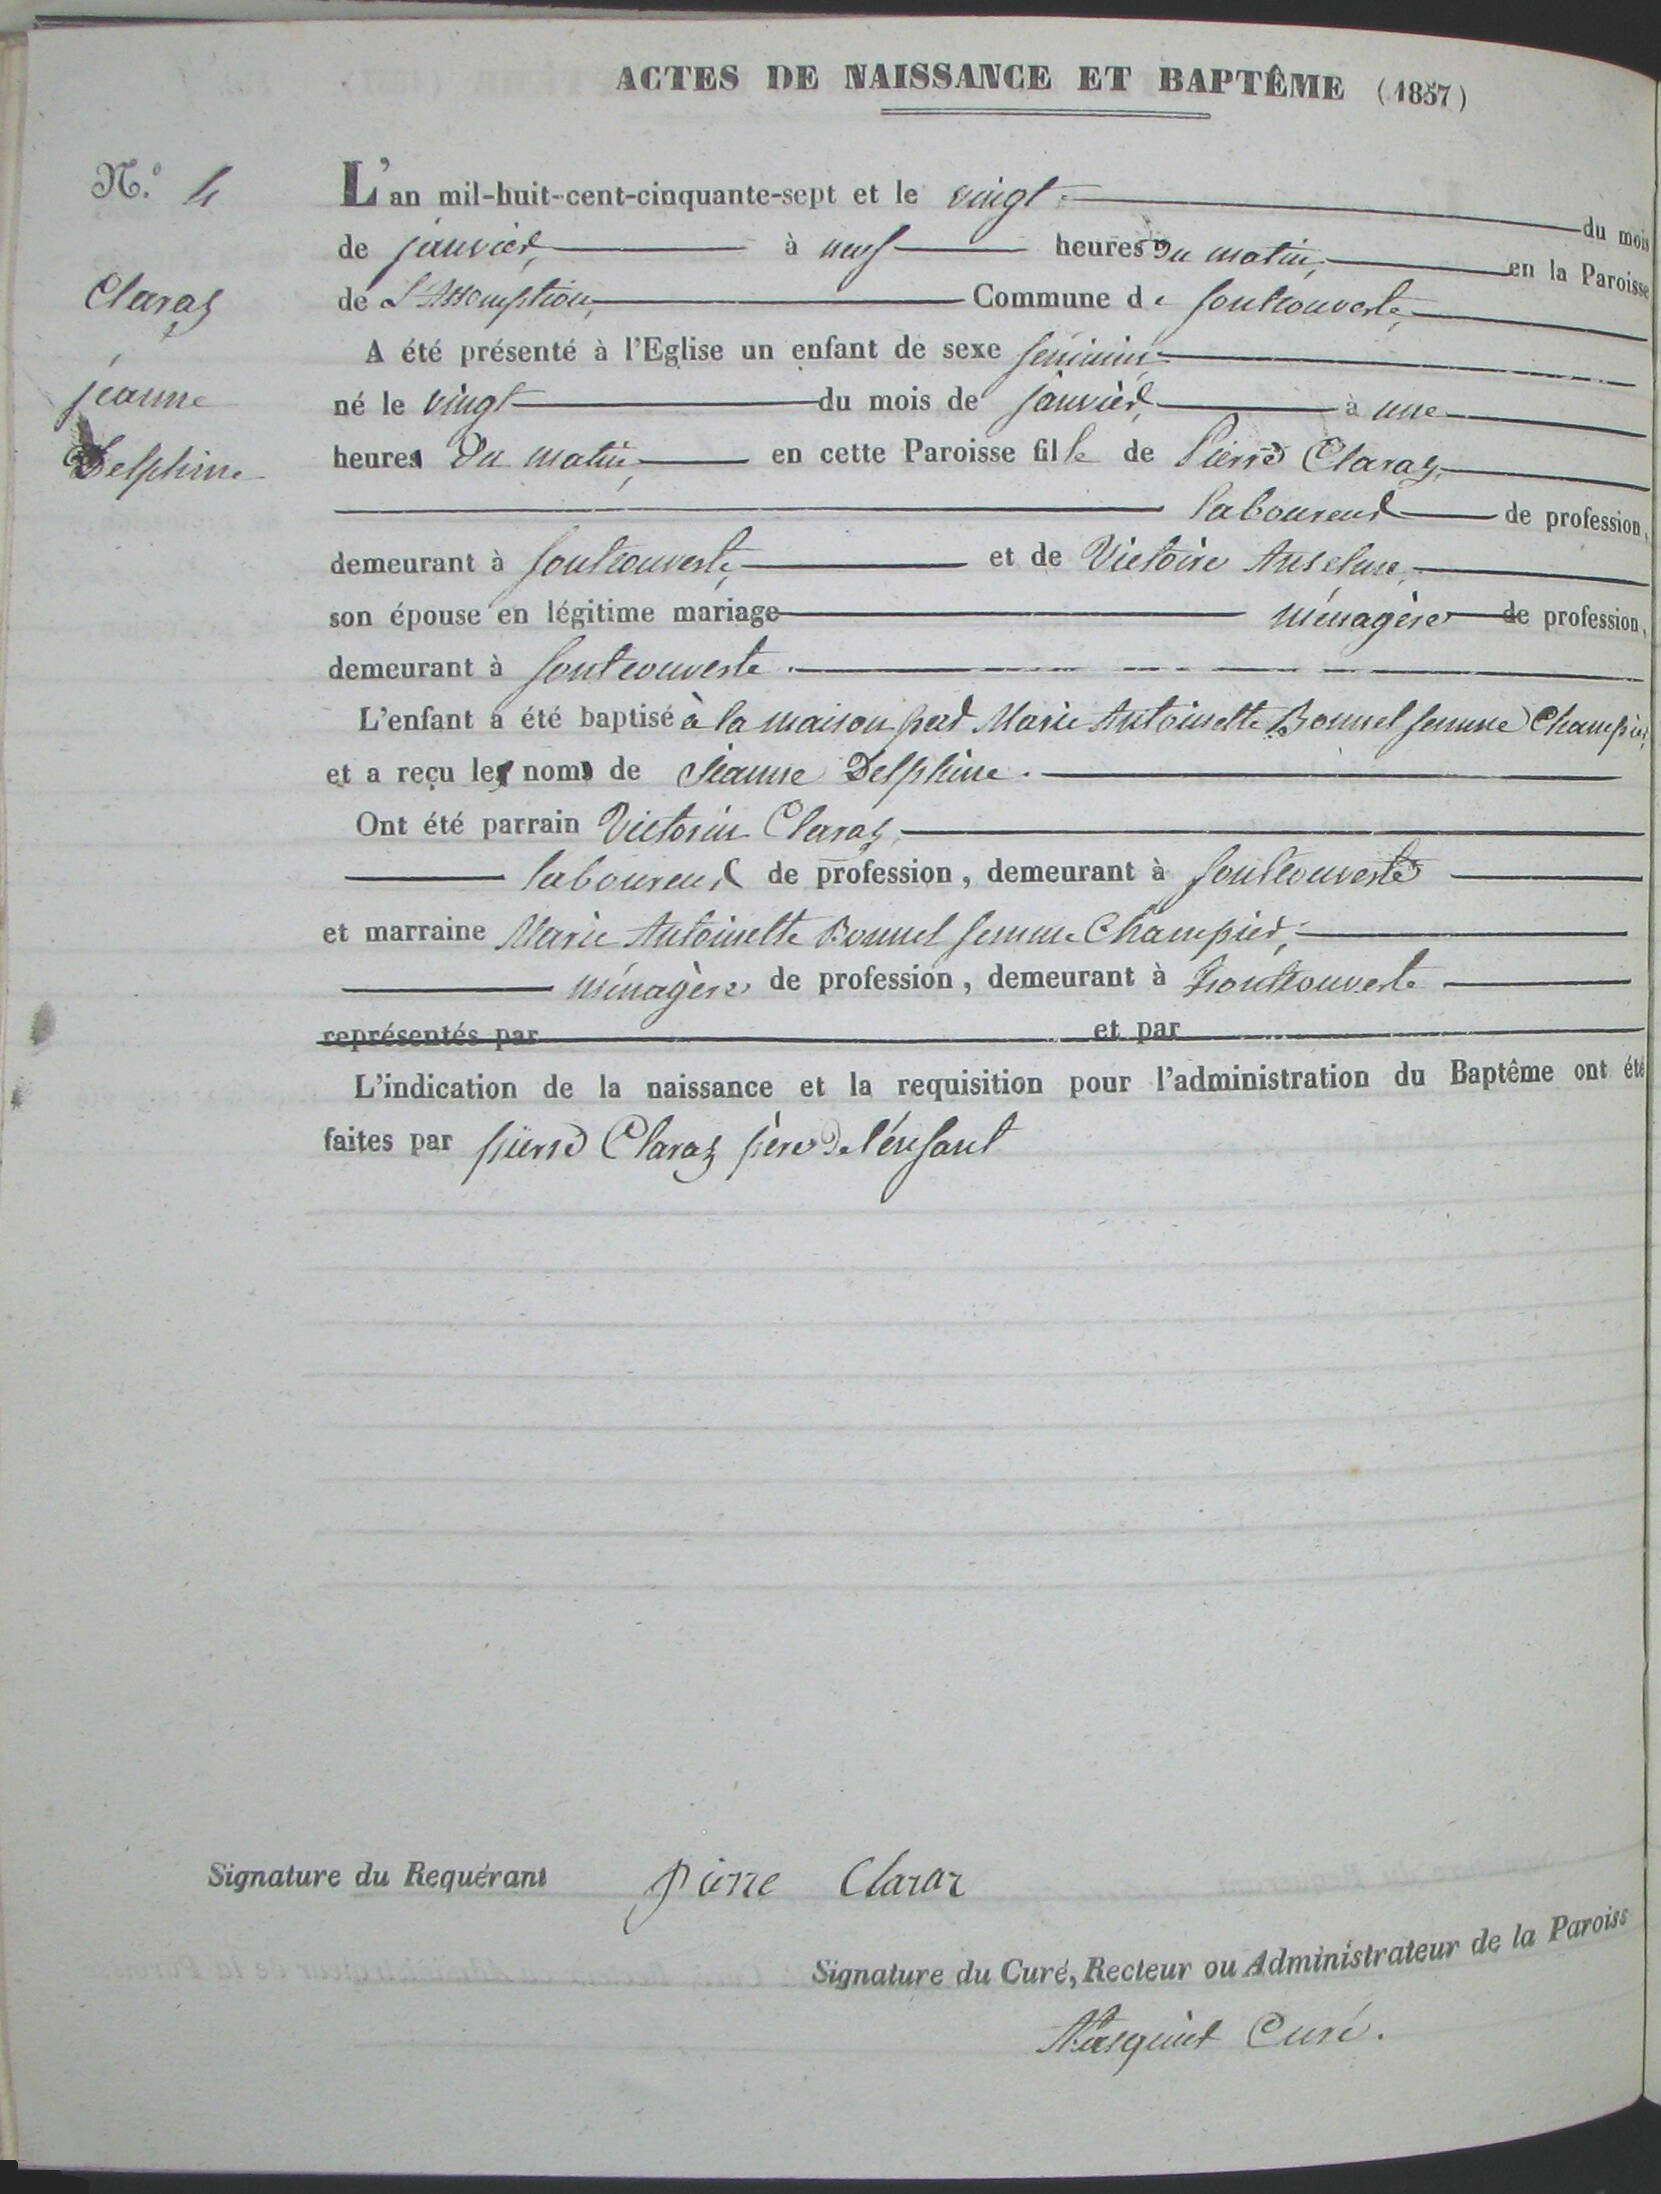 ACTES DE NAISSANCE ET BAPTÊME (1857)
N.° 4
Claraz
jeanne
Delphine
L'an mil-huit-cent-cinquante-sept et le vingt du mois
de janvier, à neuf heures du matin, en la Paroisse
de L'Assomption, Commune de fontcouverte,
A été présenté à l'Eglise un enfant de sexe féminin,
né le vingt du mois de janvier, à une
heures du matin, en cette Paroisse fille de Pierre Claraz,
laboureur de profession,
demeurant à fontcouverte, et de Victoire Anselme,
son épouse en légitime mariage ménagère de profession,
demeurant à fontcouverte.
L'enfant a été baptisé à la maison par Marie Antoinette Bonnel femme Champier,
et a reçu les noms de Jeanne Delphine.
Ont été parrain Victorin Claraz,
laboureur de profession, demeurant à fontcouverte
et marraine Marie Antoinette Bonnel femme Champier,
ménagère de profession, demeurant à fontcouverte
représentés par et par
L'indication de la naissance et la requisition pour l'administration du Baptême ont été
faites par pierre Claraz père de l'enfant
Signature du Requérant pierre Claraz
Signature du Curé, Recteur ou Administrateur de la Paroiss
Curé.